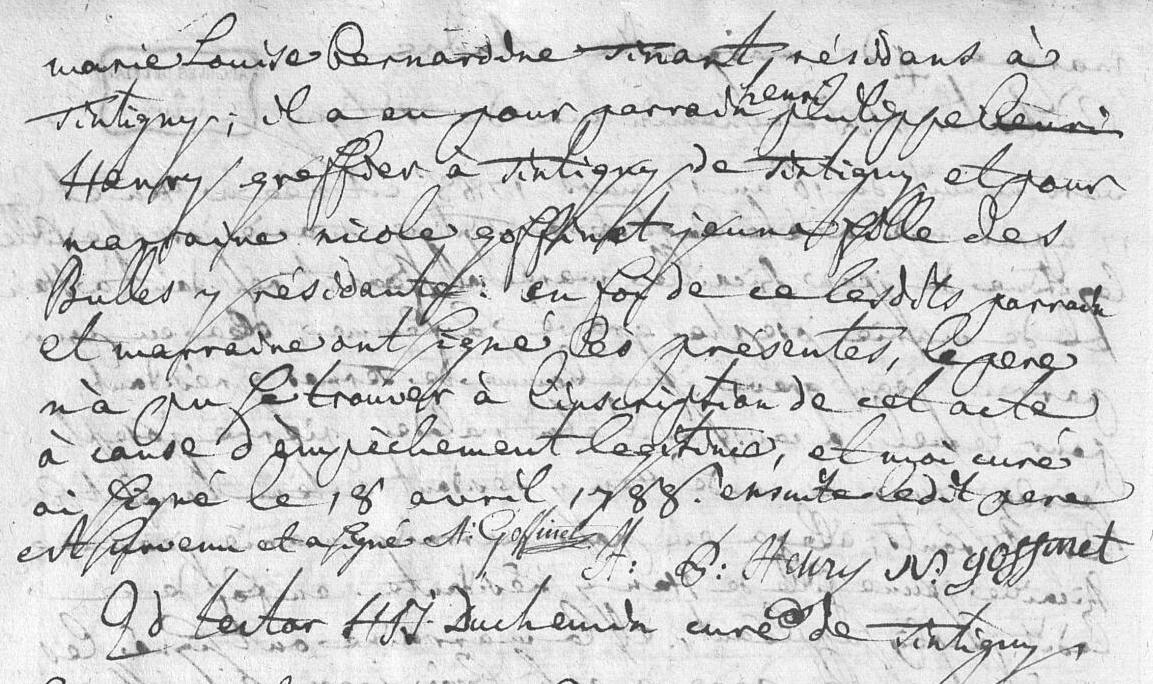 marie Louise bernardine Sinart, résidans à
Tintigny; il a eu pour parrain henri philippe henri
Henry greffier à Tintigny de Tintigny et pour
marraine nicole goffinet jeune fille des
Bulles y résidante: en foi de ce lesdits parrain
et marraine ont signé les présentes, le pere
n'à pu se trouver à l'inscription de cet acte
à cause d'èmpèchement legitime, et moi curé
ai signé le 18 avril 1788. ensuite ledit pere
est survenu et a signé N: Goffinet H: P: Henry N: goffinet
Qd testor Duchemin curé de Tintigny,